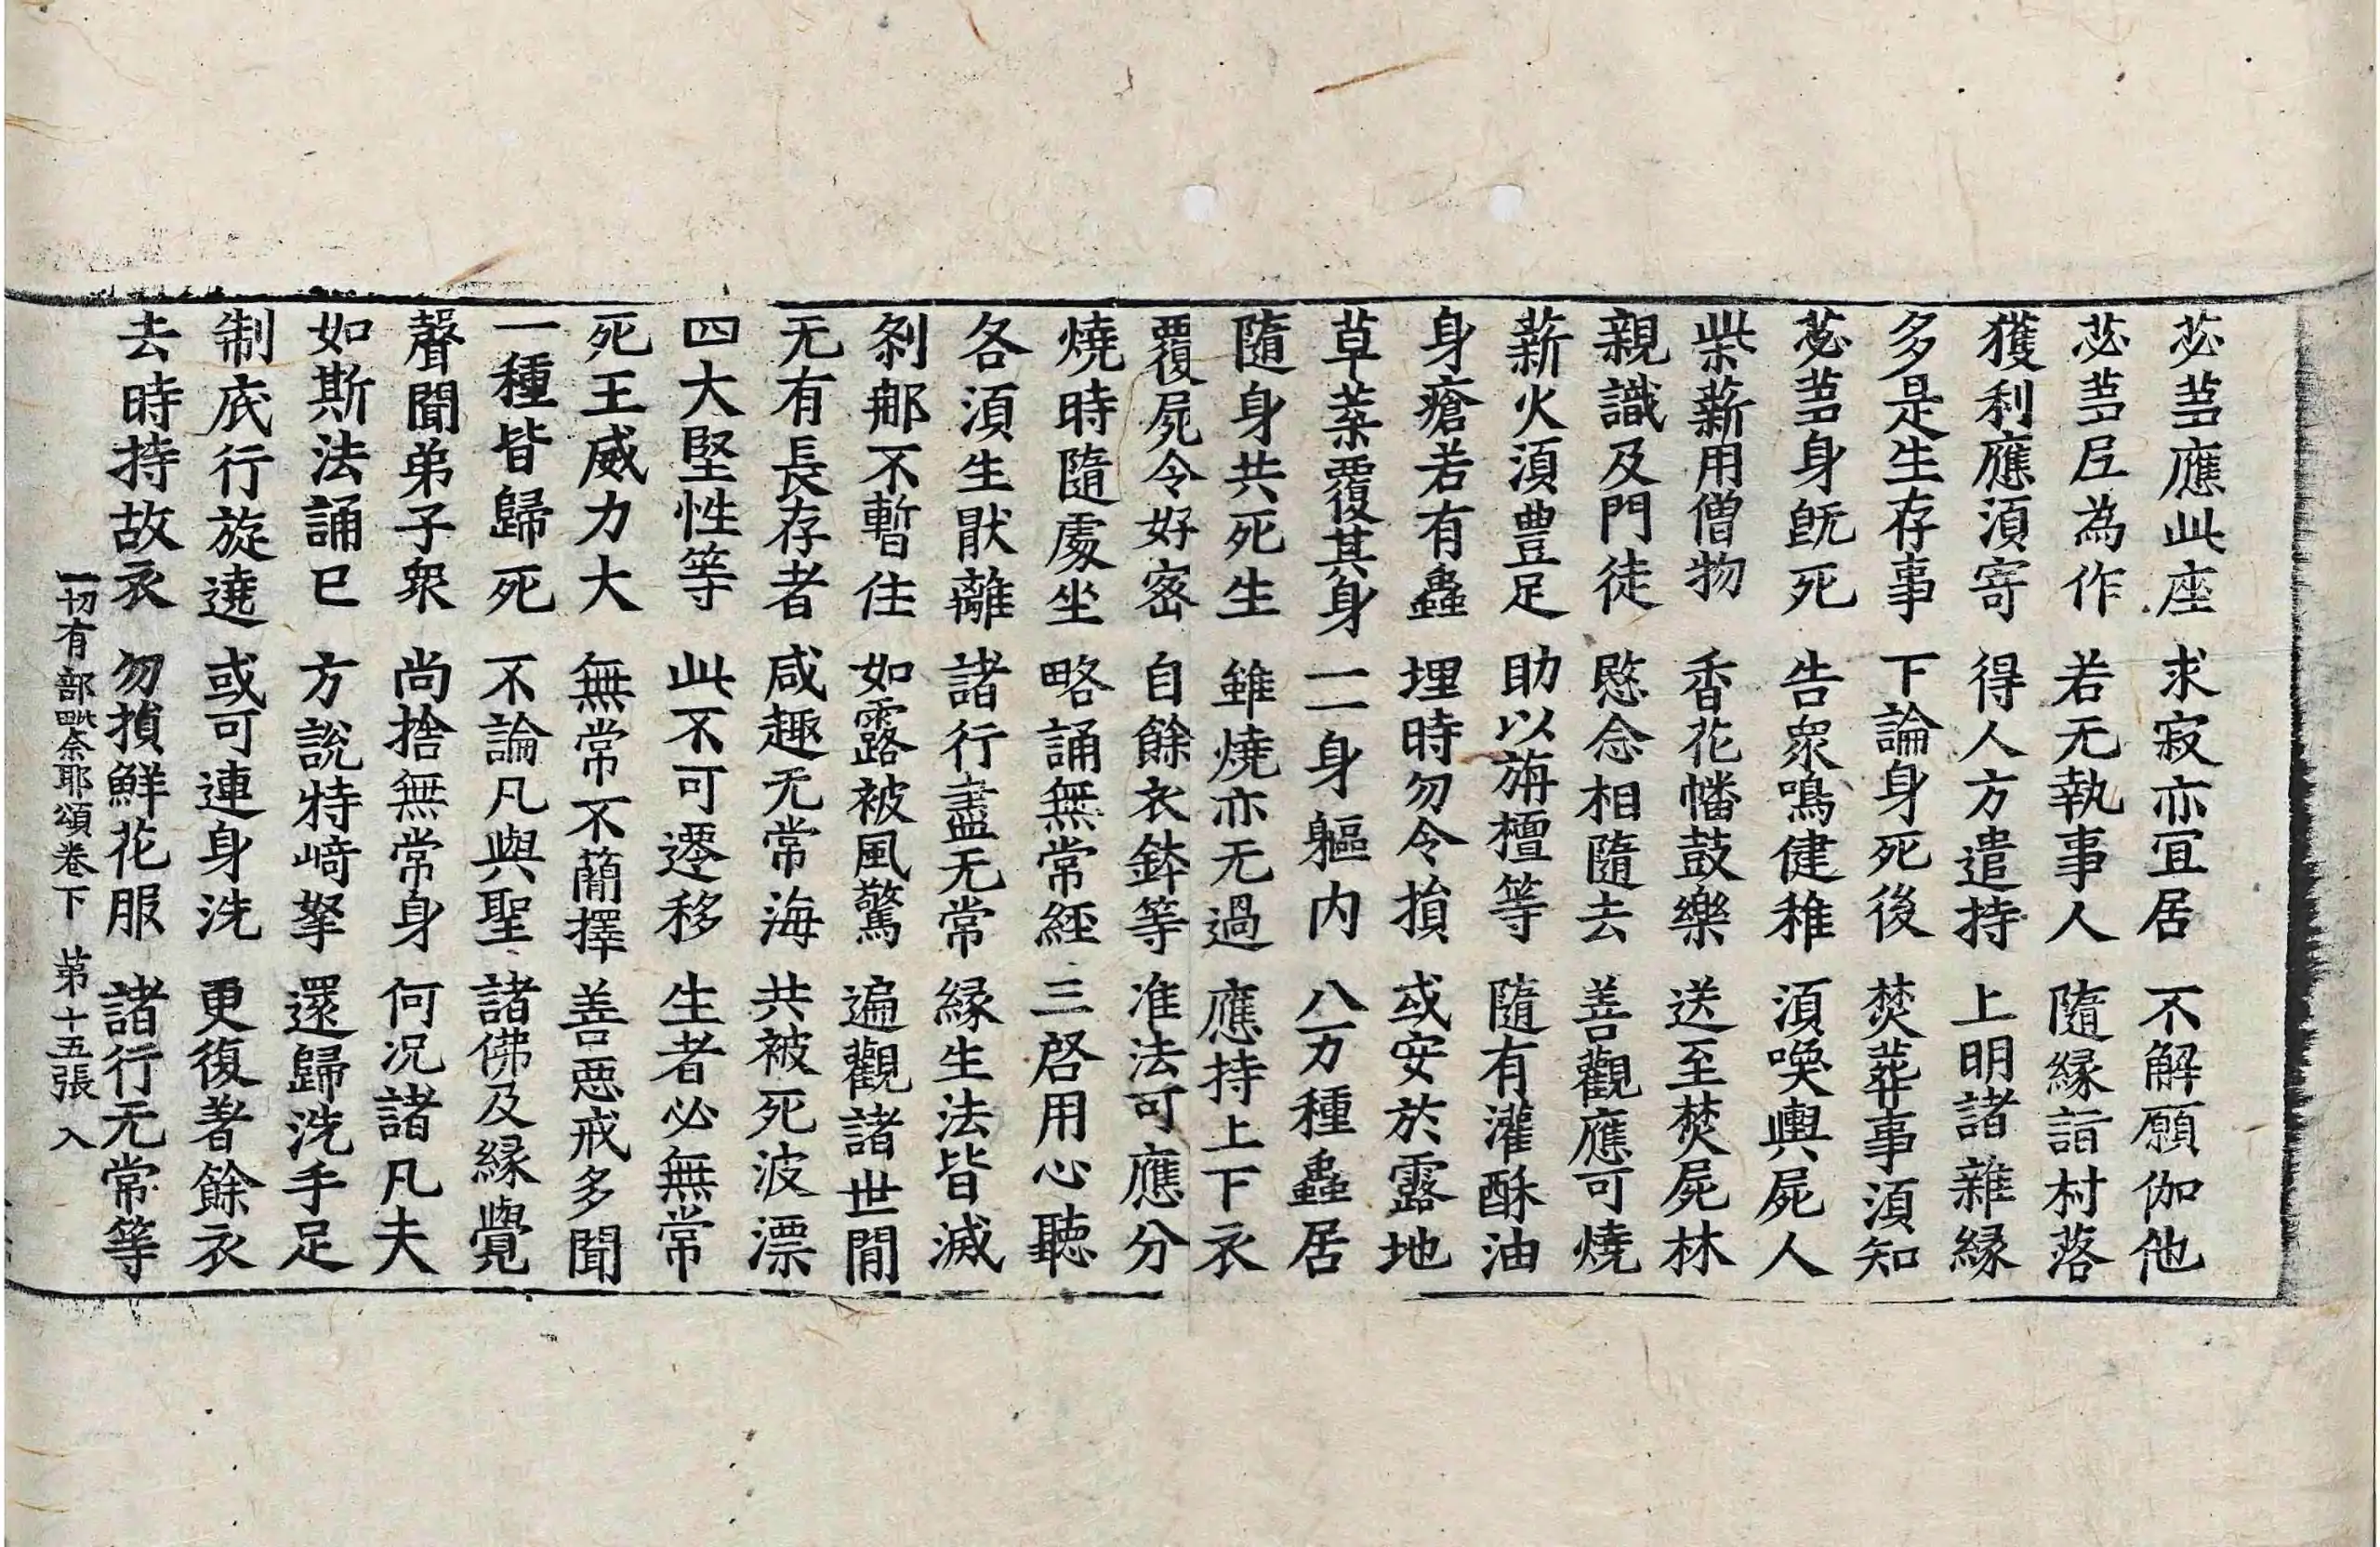 苾蒭應此座 求寂亦冝居 不解願伽他
苾蒭尼為作 若无執事人 隨縁詣村落
獲利應須寄 得人方遣持 上明諸雜縁
多是生存事 下論身死後 焚葬事須知
苾蒭身旣死 告衆鳴健稚 須喚輿屍人
柴薪用僧物 香花幡鼓樂 送至焚屍林
親識及門徒 愍念相隨去 善觀應可燒
薪火須豊足 助以旃檀等 隨有灌酥油
身瘡若有蟲 埋時勿令損 或安於露地
草葉覆其身 一一身軀内 八万種蟲居
隨身共死生 雖燒亦无過 應持上下衣
覆屍令好密 自餘衣鉢等 准法可應分
燒時隨處坐 略誦無常經 三啓用心聽
各須生猒離 諸行盡无常 縁生法皆滅
刹那不暫住 如露被風驚 遍觀諸世閒
无有長存者 咸趣无常海 共被死波漂
四大堅性等 此不可遷移 生者必無常
死王威力大 無常不蕳擇 善惡戒多聞
一種皆歸死 不論凡與聖 諸佛及縁覺
聲聞弟子衆 尚捨無常身 何况諸凡夫
如斯法誦已 方說特崎拏 還歸洗手足
制底行旋遶 或可連身洗 更復著餘衣
去時持故衣 勿損鮮花服 諸行无常等
一切有部毗奈耶頌卷下 第十五張 入